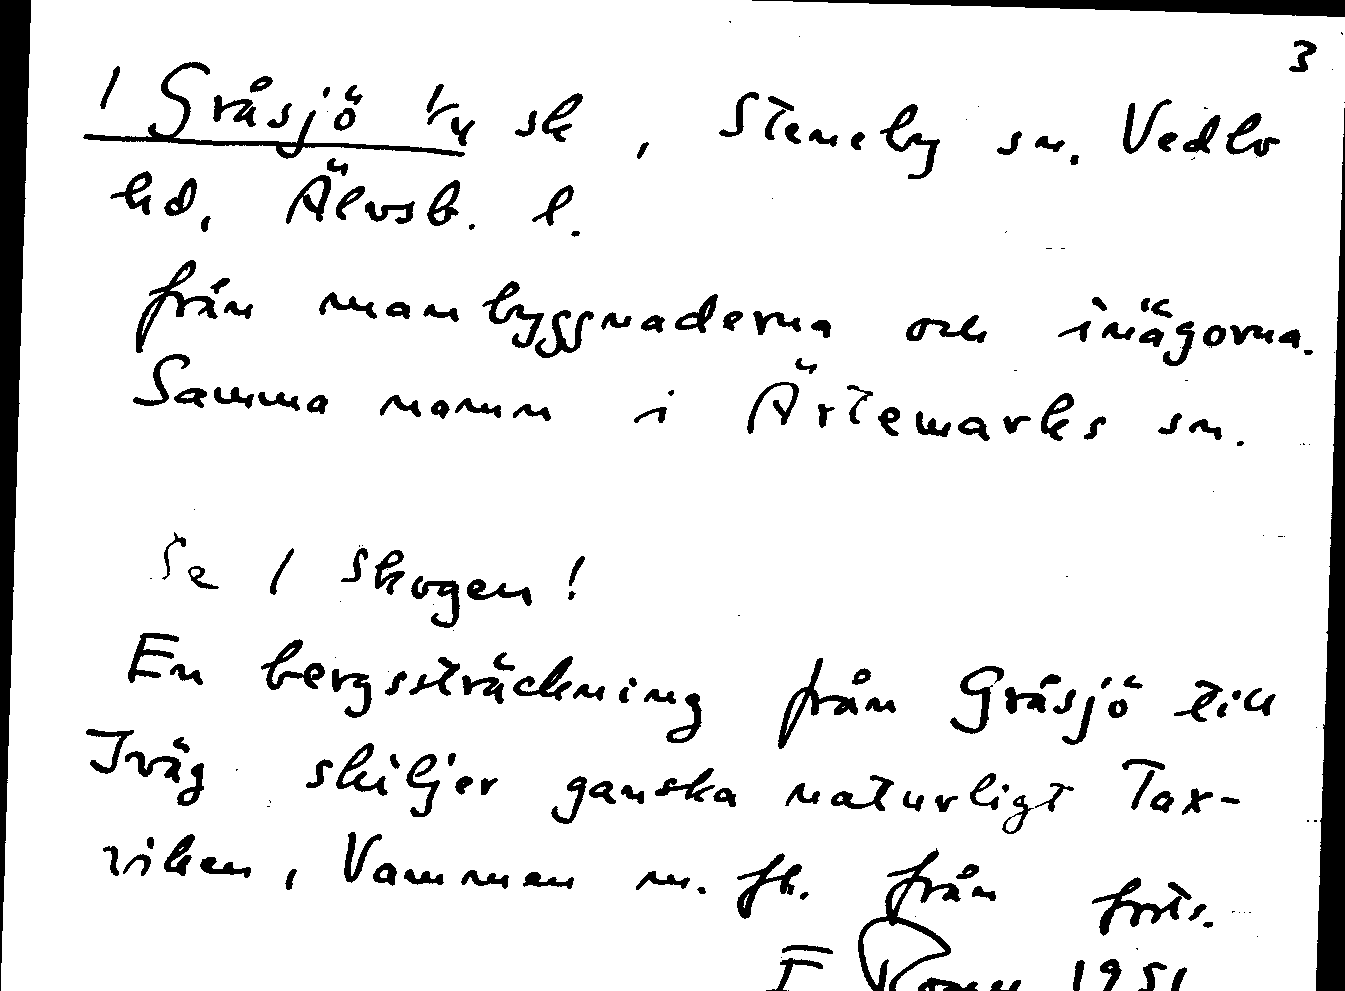 3
/ Gråsjö 1/4 sk, Steneby sn. Vedbo
hd, Älvsb. l.
från manbyggnaderna och inägorna.
Samma namn i Ärtemarks sn.
Se / Skogen!
En bergssträckning från Gråsjö till
Iväg skiljer ganska naturligt Tax-
viken, Vammen m. fl. från forts.
1951